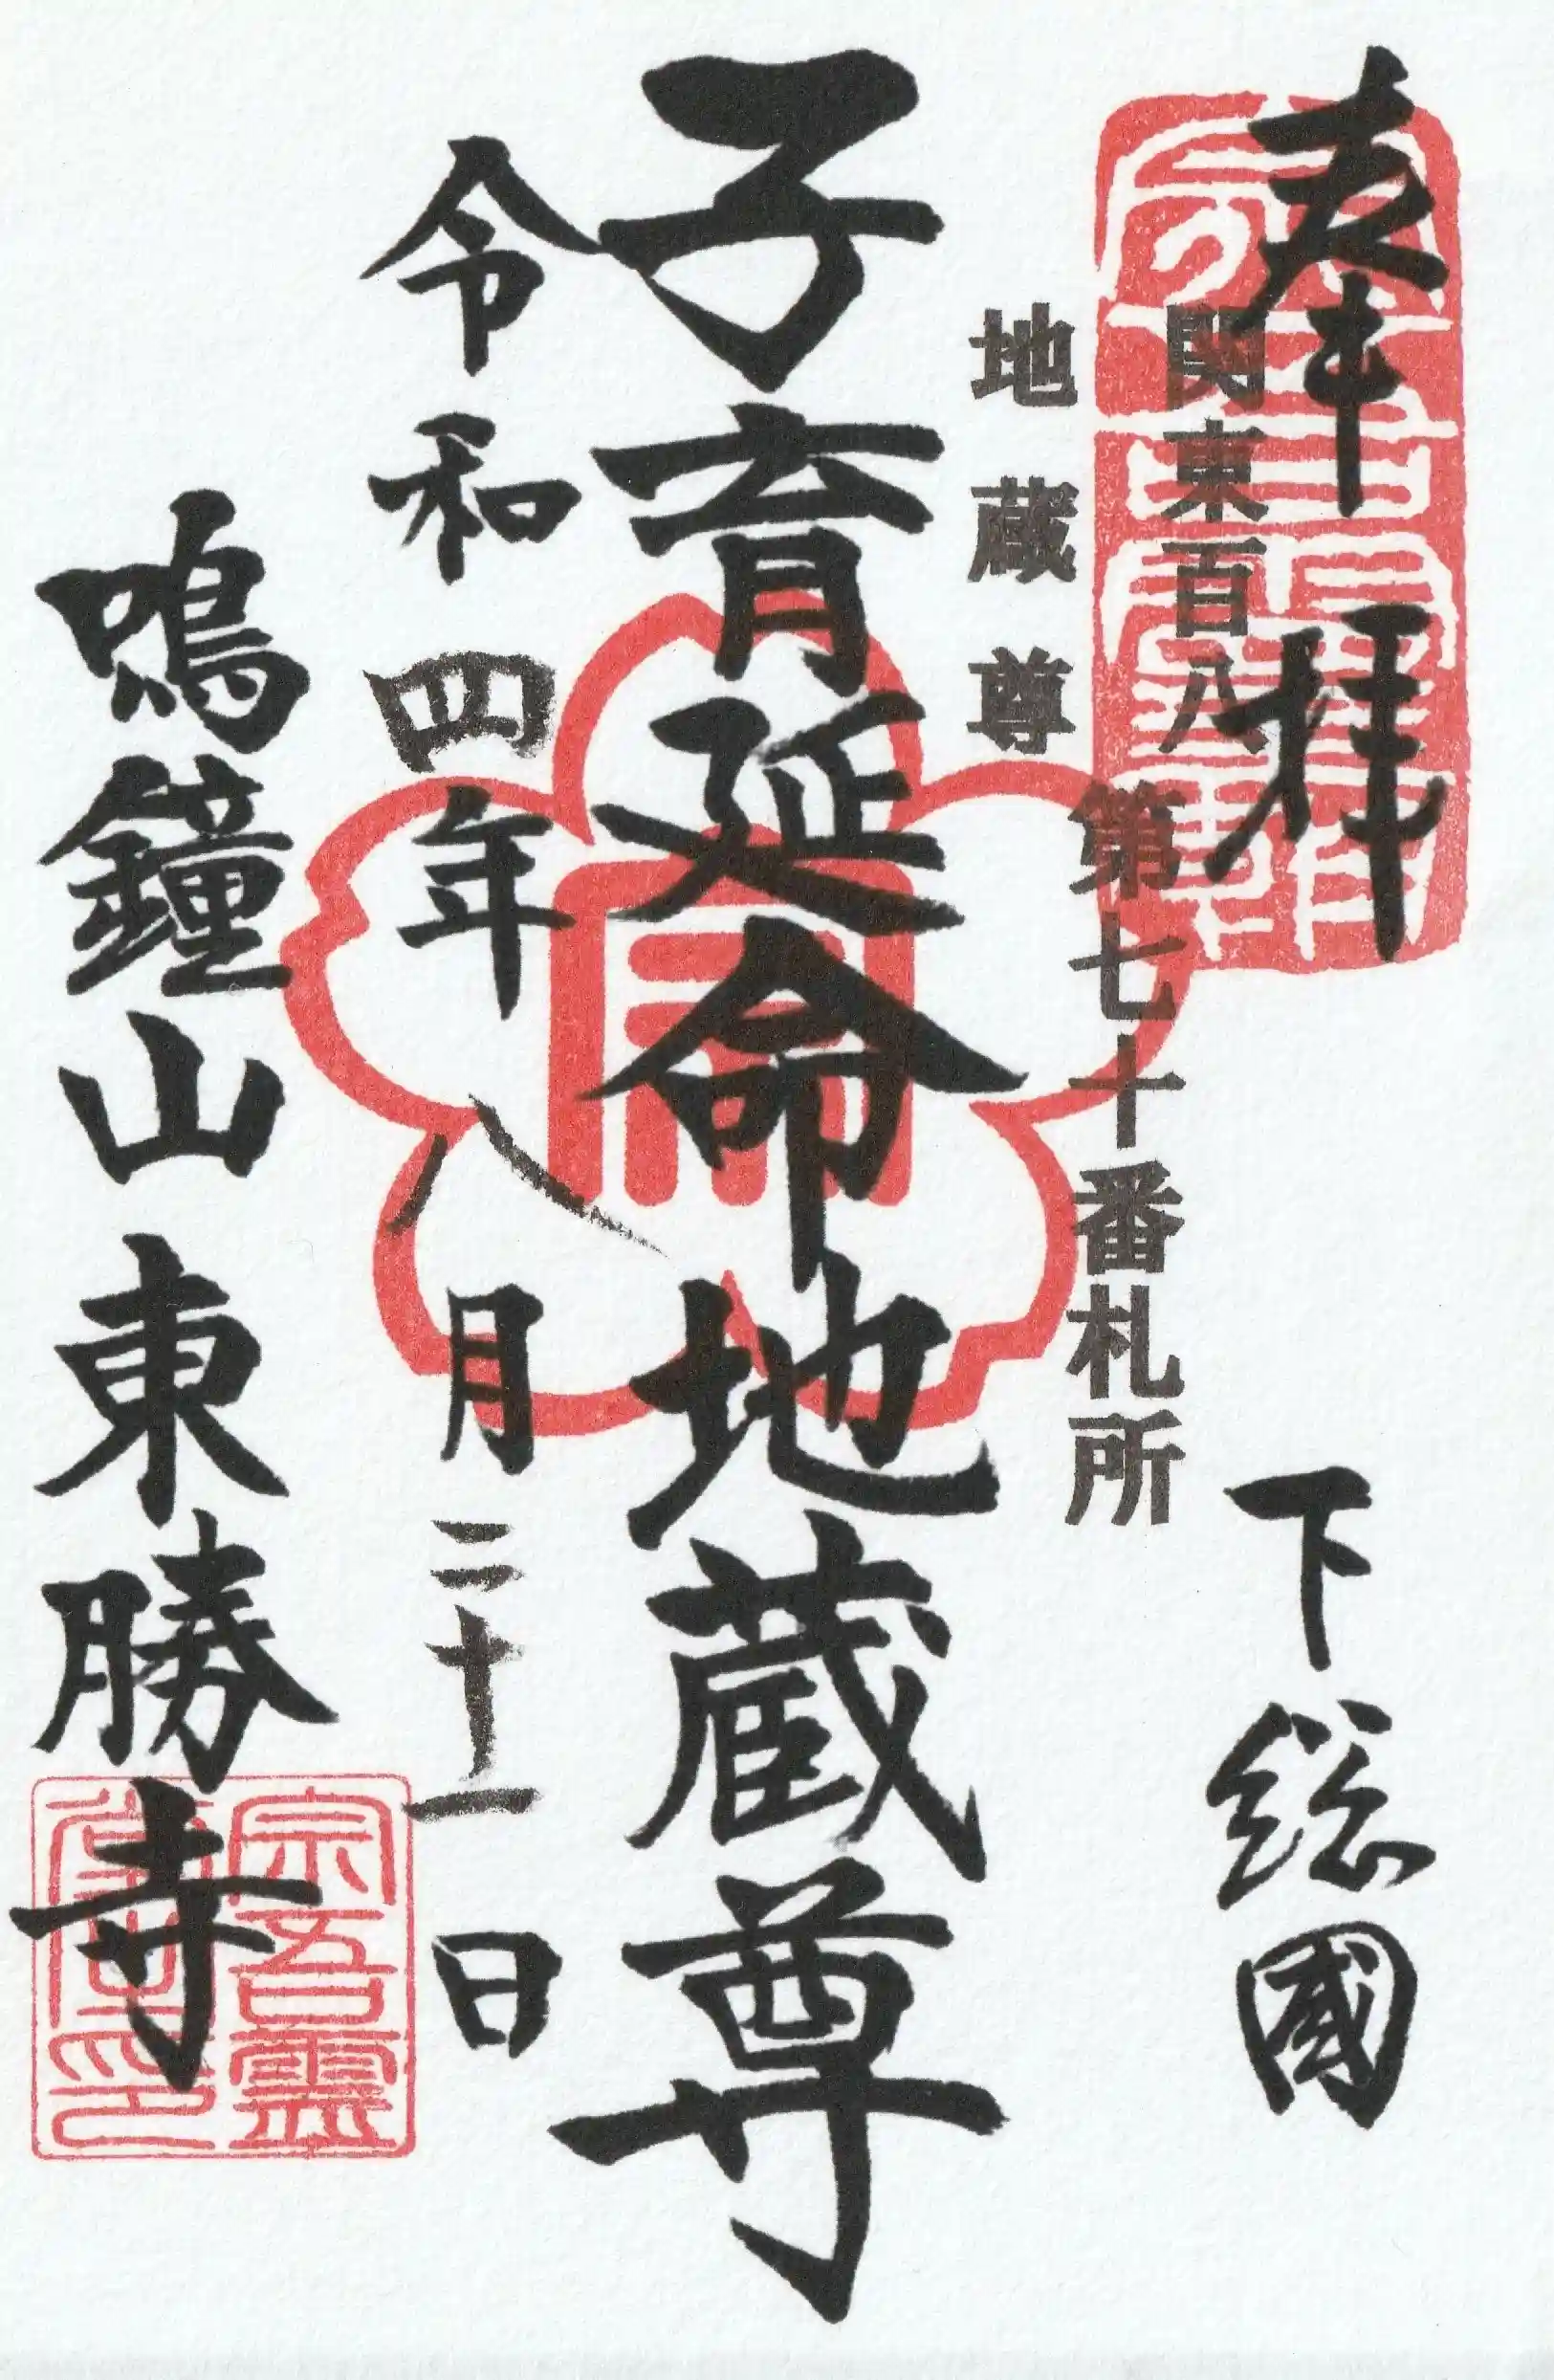 奉拝
下総國
関東百八
地蔵尊
第七十番札所
子育延命地蔵尊
令和四年八月二十一日
鳴鐘山東勝寺
宗吾霊
堂之印